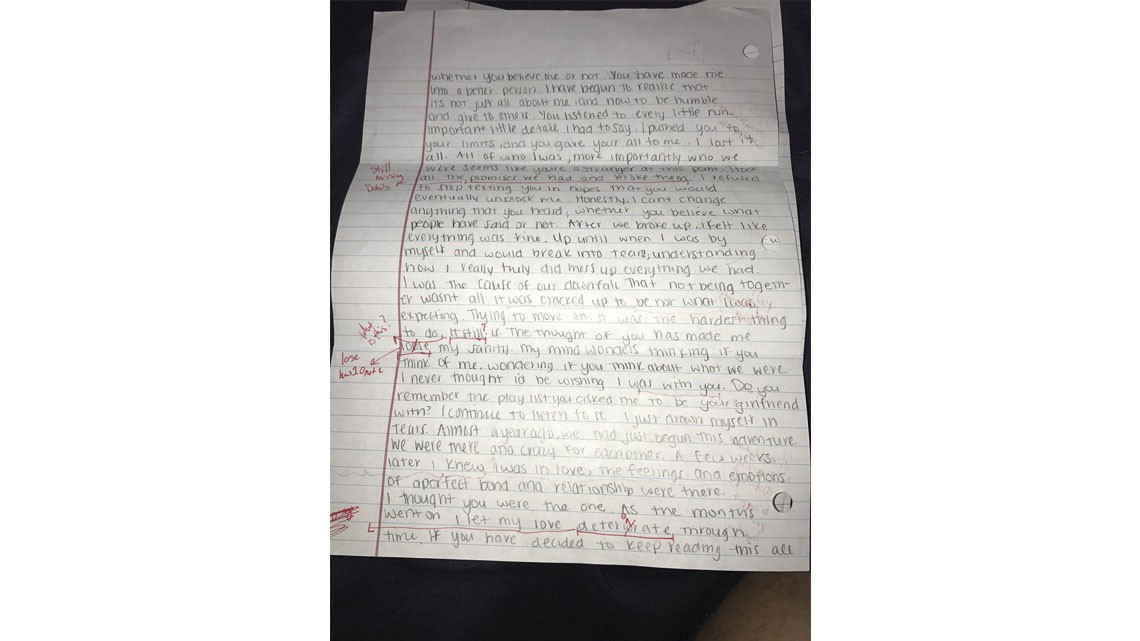 whether you believe me or not. You have made me
into a better person. I have begun to realize that
its not just all about me and how to be humble
and give to others. You listened to every little
important little detail I had to say. I pushed you to
your limits, and you gave your all to me. I lost it
all. All of who I was, more importantly who we
were seems like youre a stranger at this point. I took
all the promises we had and broke them. I refused
to stop texting you in hopes that you would
eventually unblock me. Honestly, I cant change
anything that you heard, whether you believe what
people have said or not. After we broke up, I felt like
everything was fine. Up until when I was by
myself and would break into tears, understanding
how I really truly did mess up everything we had.
I was the cause of our downfall. That not being togeth-
er wasnt all it was cracked up to be nor what I was
expecting. Trying to move on it was the hardest thing
to do, it still is. The thought of you has made me
my sanity. My mind wonders thinking if you
think of me. wondering if you think about what we were.
I never thought id be wishing I was with you. Do you
remember the play list you asked me to be your girlfriend
with? I continue to listen to it. I just drown myself in
tears. Almost a year ago, we had just begun this adventure.
We were there and crazy for eachother. A few weeks
later I knew, I was in love, the feelings and emotions
of a perfect bond and relationship were there.
I thought you were the one. As the months
went on I let my love through
time. If you have decided to keep reading this all
Still
missing
Details
what
is this?
lose